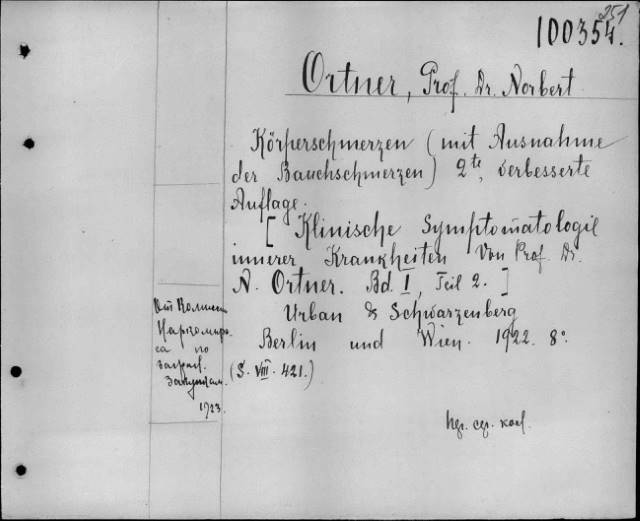 251
100354.
Ortner, Prof. Dr. Norbert
Körperschmerzen (mit Ausnahme
der Bauchschmerzen) 2te, verbesserte
Auflage.
[Klinische Symptomatologie
innerer Krankheiten von Prof. Dr.
N. Ortner. Bd. I, Teil 2.]
Urban & Schwarzenberg
Berlin und Wien. 1922. 8°.
(S. VIII. 421.)
От Комисии
Наркомпро
са по
заграл.
Закупкам.
1923.